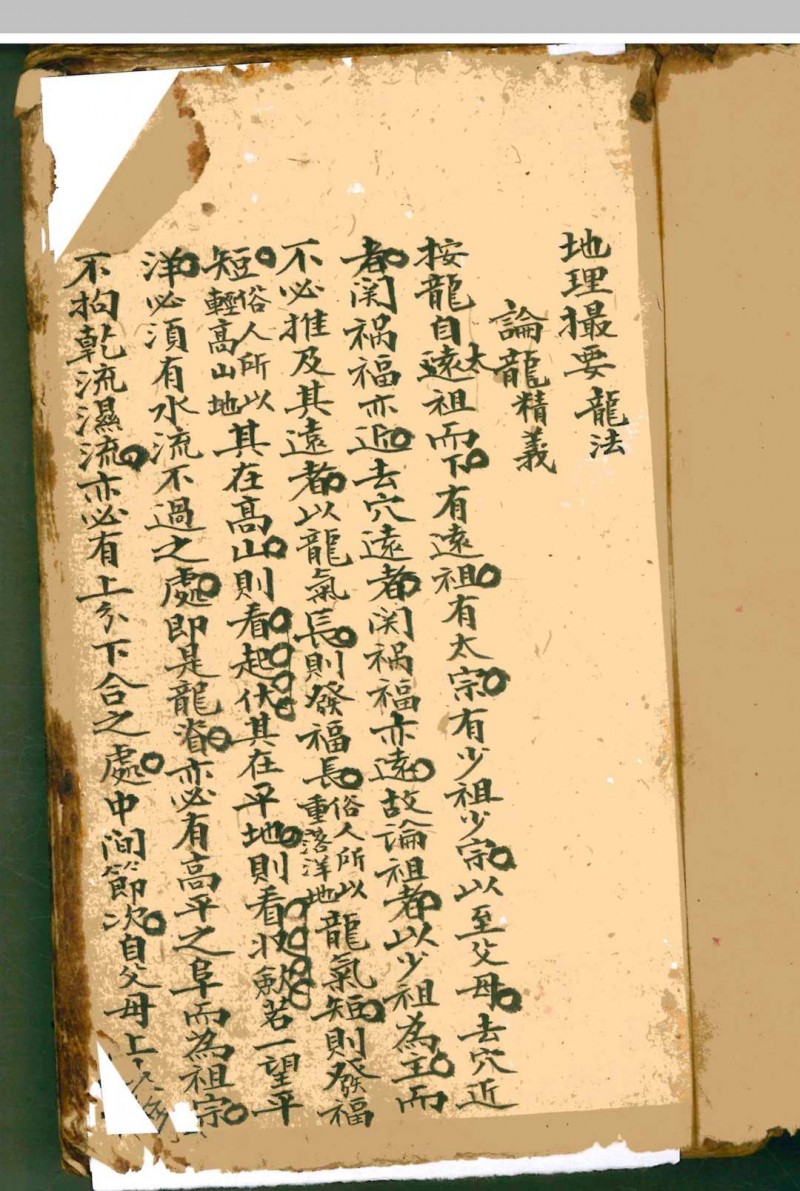 地理撮要 龍法
論龍精義
按龍自遠太祖而下有遠祖有太宗有少祖少宗以至父母去穴近
者関禍福亦近去穴遠者関禍福亦遠故論祖者以少祖為主而
不必推及其遠者以龍氣長則發福長俗人所以重落洋地龍氣短則發福
短俗人所以輕高山地其在高山則看起伏其在平地則看收歛若一望平
洋必須有水流不過之處即是龍脊亦必有高平之阜而為祖宗
不拘乾流濕流亦必有上分下合之處中間節次自父母上